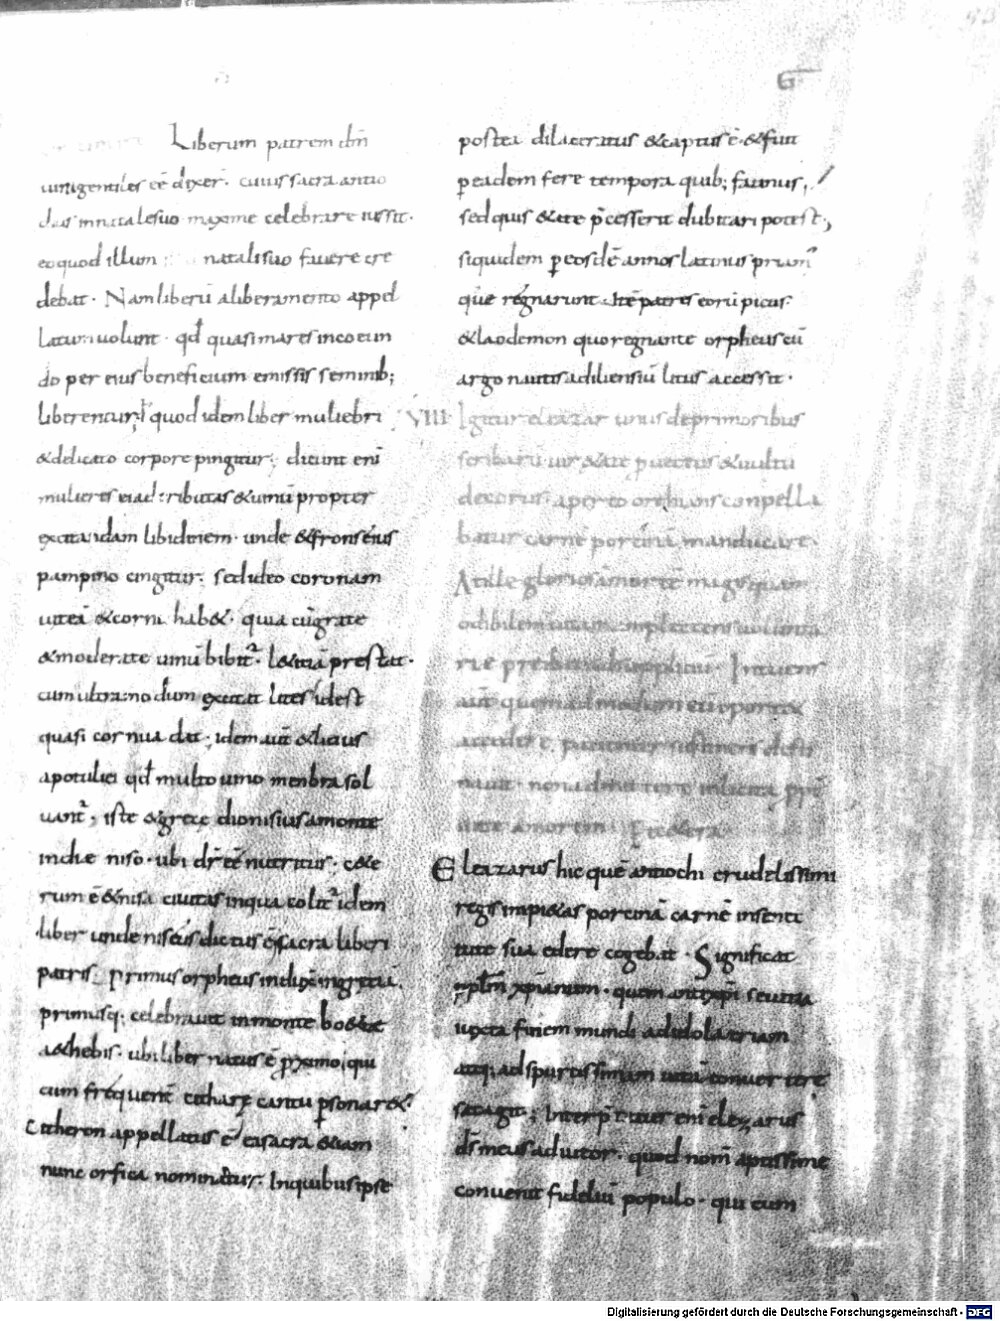 G
Liberum patrem dm̄
uini gentiles eē dixer̄. cuius sacra antio
chus in natale suo maxime celebrare iussit.
eo quod illum natali suo fauere cre
debat. Nam liberū a liberamento appel
latum uolunt. qđ quasi mares in coeun
do per eius beneficium emissis seminib;
liberentur; l quod idem liber muliebri
& delicato corpore pingitur; dicunt enī
mulieres ei ad tributas & uinū propter
excitandam libidinem. unde & frons eius
pampino cingitur; sed ideo coronam
uiteā & cornu hab&. quia cū grate
& moderate uinū bibit̄. l&itiā prestat.
cum ultra modum excitat lites idest
quasi cornua dat; idem aut̄ & lieus
apotuliei qđ multo uino menbra sol
uant̄; iste & grece dionisius a monte
indie niso. ubi dr̄ eē nutritus; c&e
rum ē & nisa ciuitas in qua colit̄ idem
liber unde niseus dictus ē; sacra liberi
patris; primus orpheus induxit in greciā;
primusq; celebrauit in monte boetiae
& thebis. ubi liber natus ē proximo; qui
cum frequent̄ cithare cantu psonar&;
Citheron appellatus ē ea sacra &iam
nunc orfica nominatur; In quibus ipse
postea dilaceratus & captus ē. & fuit
peadem fere tempora quib; faunus;
sed quis & ate p̄cesserit dubitari potest;
siquidem p eosdē annos latinus primū
que regnarunt. Itē patres eorū picus
& laodemon quo regnante orpheus cū
argo nautis ad iliensiū litus accessit.
VIII Igitur eleazar unus de primoribus
scribarū uir & ate puectus & uultu
decorus; aperto ore hians conpelle
batur carnē porcinā manducare.
At ille gloriosā mortē magis quam
odibilem uitam complectens uolunta
rie preibat ad supplicium. Intuens
aut quem ad modum eū oporter&
accedere, patienter sustinens desti
nauit. non admittere inlicita ppt̄
uite amorem Et cetera
Eleazarus hic quē antiochi crudelissimi
regis impi&as porcinā carnē in senec
tute sua edere cogebat. Significat
pplm̄ xpianum. quem antixp̄i seuitia
iuxta finem mundi ad idolatriam
atq; ad spurcissimam uitā conuertere
satagit; Interp̄tatur enī eleazarus
ds̄ meus adiutor. quod nom̄ aptissime
conuenit fideliū populo. qui cum
Digitalisierung gefördert durch die Deutsche Forschungsgemeinschaft - DFG